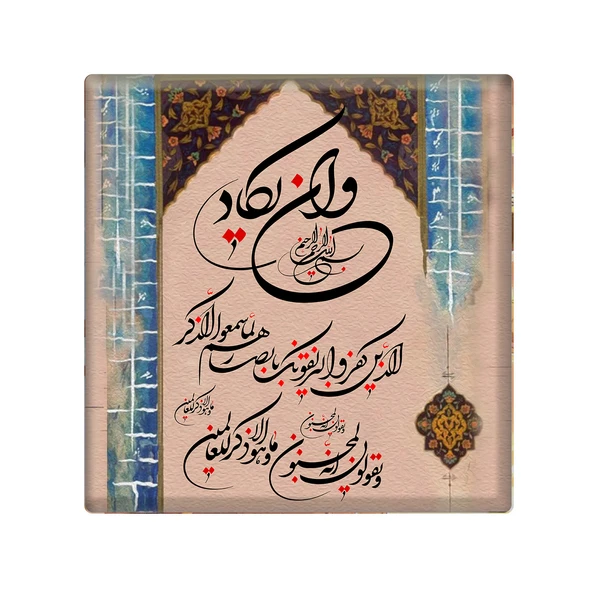 وان یکاد
بسم الله الرحمن الرحیم
الذین کفروا لیزلقونک بابصارهم لما سمعوا الذکر
و یقولون انه لمجنون
و ما هو الا ذکر للعالمین
و یقولون انه لمجنون
و ما هو الا ذکر للعالمین